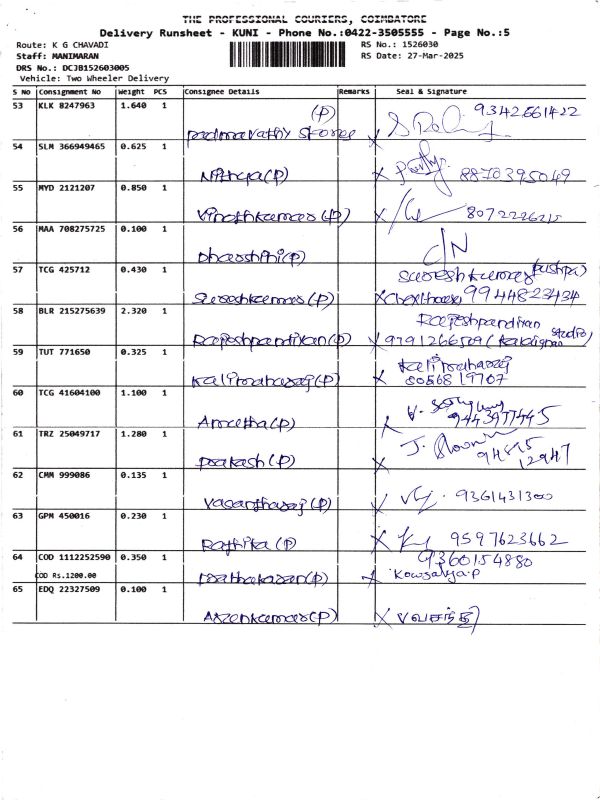 THE PROFESSIONAL COURIERS, COIMBATORE
Delivery Runsheet - KUNI - Phone No.:0422-3505555 - Page No.:5
Route: K G CHAVADI
RS No.: 1526030
Staff: MANIMARAN
RS Date: 27-Mar-2025
DRS No.: DCJB152603005
Vehicle: Two Wheeler Delivery
S No Consignment No Weight PCS Consignee Details Remarks Seal & Signature
53 KLK 8247963 1.640 1 (P) 9342661422
padmavathy stores X
54 SLM 366949465 0.625 1
Nithya(P) X 8870395049
55 MYD 2121207 0.850 1
Vinothkumar(P) X 8072226215
56 MAA 708275725 0.100 1 C/N
Dharshini(P)
57 TCG 425712 0.430 1 Sureshkumar (pushpa)
Sureshkumar(P) X 9944823434
58 BLR 215275639 2.320 1 Rajeshpandiyan
Rajeshpandiyan(P) X 9791266509
59 TUT 771650 0.325 1 Kalimaharaj
Kalimaharaj(P) X 8056819707
60 TCG 41604100 1.100 1
Ametha(P) X 9443977445
61 TRZ 25049717 1.280 1 J.
prakash(P) X 94895 12947
62 CMM 999086 0.135 1
Vasantharaj(P) X 9361431300
63 GPM 450016 0.230 1
Rathika(P) X 9597623662
64 COD 1112252590 0.350 1 9360154880
COD Rs.1200.00 X Kowsalya.P
65 EDQ 22327509 0.100 1
Arzenkumar(P) X Vவசந்தி